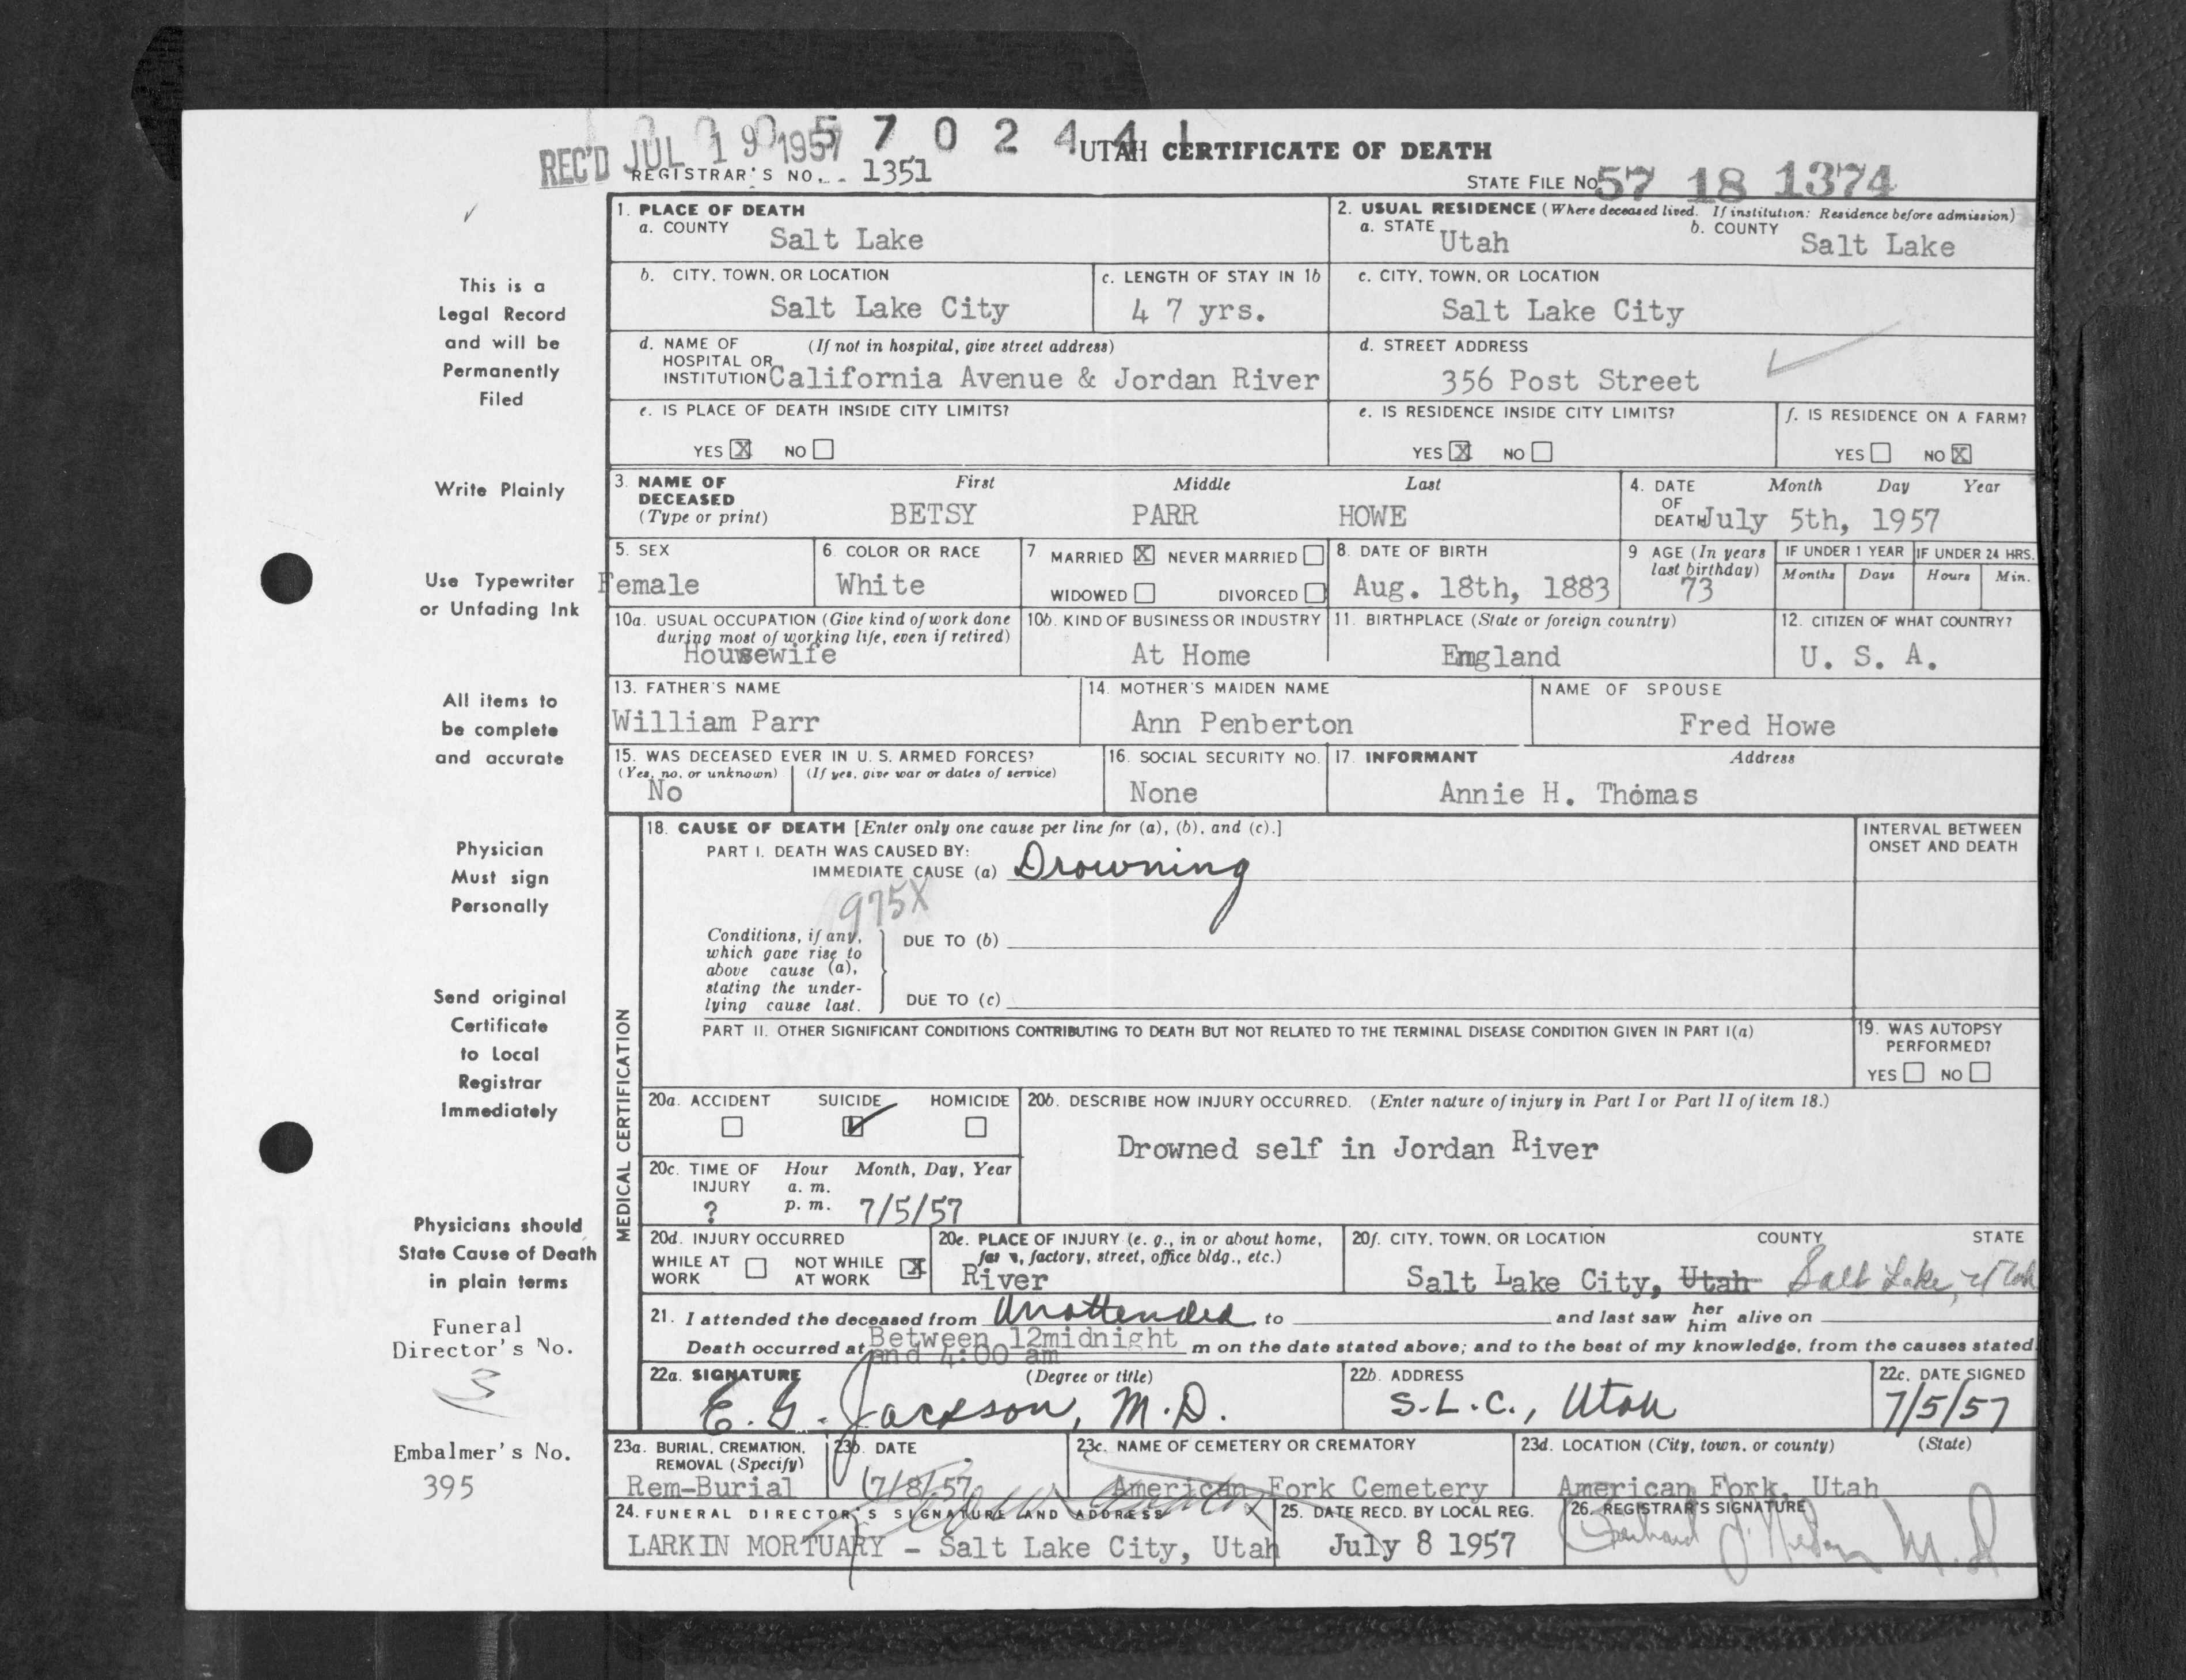 1 0 0 0 5 7 0 2 4 4 1
REC'D JUL 19 1957
UTAH CERTIFICATE OF DEATH
REGISTRAR'S NO. 1351
STATE FILE NO. 57 18 1374
This is a
Legal Record
and will be
Permanently
Filed
Write Plainly
Use Typewriter
or Unfading Ink
All items to
be complete
and accurate
Physician
Must sign
Personally
Send original
Certificate
to Local
Registrar
Immediately
Physicians should
State Cause of Death
in plain terms
Funeral
Director's No.
3
Embalmer's No.
395
1. PLACE OF DEATH
a. COUNTY Salt Lake
2. USUAL RESIDENCE (Where deceased lived. If institution: Residence before admission)
a. STATE Utah b. COUNTY Salt Lake
b. CITY, TOWN, OR LOCATION
Salt Lake City
c. LENGTH OF STAY IN 1b
4 7 yrs.
c. CITY, TOWN, OR LOCATION
Salt Lake City
d. NAME OF (If not in hospital, give street address)
HOSPITAL OR
INSTITUTION California Avenue & Jordan River
d. STREET ADDRESS
356 Post Street
e. IS PLACE OF DEATH INSIDE CITY LIMITS?
YES X NO
e. IS RESIDENCE INSIDE CITY LIMITS?
YES X NO
f. IS RESIDENCE ON A FARM?
YES NO X
3. NAME OF First Middle Last
DECEASED
(Type or print) BETSY PARR HOWE
4. DATE Month Day Year
OF
DEATH July 5th, 1957
5. SEX
Female
6. COLOR OR RACE
White
7. MARRIED X NEVER MARRIED
WIDOWED DIVORCED
8. DATE OF BIRTH
Aug. 18th, 1883
9. AGE (In years
last birthday)
73
IF UNDER 1 YEAR
Months Days
IF UNDER 24 HRS.
Hours Min.
10a. USUAL OCCUPATION (Give kind of work done
during most of working life, even if retired)
Housewife
10b. KIND OF BUSINESS OR INDUSTRY
At Home
11. BIRTHPLACE (State or foreign country)
England
12. CITIZEN OF WHAT COUNTRY?
U. S. A.
13. FATHER'S NAME
William Parr
14. MOTHER'S MAIDEN NAME
Ann Penberton
NAME OF SPOUSE
Fred Howe
15. WAS DECEASED EVER IN U. S. ARMED FORCES?
(Yes, no, or unknown) (If yes, give war or dates of service)
No
16. SOCIAL SECURITY NO.
None
17. INFORMANT Address
Annie H. Thomas
MEDICAL CERTIFICATION
18. CAUSE OF DEATH [Enter only one cause per line for (a), (b), and (c).]
PART I. DEATH WAS CAUSED BY:
IMMEDIATE CAUSE (a) Drowning
975X
INTERVAL BETWEEN
ONSET AND DEATH
Conditions, if any,
which gave rise to
above cause (a),
stating the under-
lying cause last.
DUE TO (b)
DUE TO (c)
PART II. OTHER SIGNIFICANT CONDITIONS CONTRIBUTING TO DEATH BUT NOT RELATED TO THE TERMINAL DISEASE CONDITION GIVEN IN PART I(a)
19. WAS AUTOPSY
PERFORMED?
YES NO
20a. ACCIDENT SUICIDE HOMICIDE
20b. DESCRIBE HOW INJURY OCCURRED. (Enter nature of injury in Part I or Part II of item 18.)
Drowned self in Jordan River
20c. TIME OF Hour Month, Day, Year
INJURY a. m.
? p. m. 7/5/57
20d. INJURY OCCURRED
WHILE AT NOT WHILE X
WORK AT WORK
20e. PLACE OF INJURY (e. g., in or about home,
farm, factory, street, office bldg., etc.)
River
20f. CITY, TOWN, OR LOCATION COUNTY STATE
Salt Lake City, Utah Salt Lake, Utah
21. I attended the deceased from Unattended to and last saw her him alive on
Death occurred at Between 12midnight and 4:00 am m on the date stated above; and to the best of my knowledge, from the causes stated.
22a. SIGNATURE (Degree or title)
E. G. Jackson, M.D.
22b. ADDRESS
S.L.C., Utah
22c. DATE SIGNED
7/5/57
23a. BURIAL, CREMATION,
REMOVAL (Specify)
Rem-Burial
23b. DATE
7/8/57
23c. NAME OF CEMETERY OR CREMATORY
American Fork Cemetery
23d. LOCATION (City, town, or county) (State)
American Fork, Utah
24. FUNERAL DIRECTOR'S SIGNATURE AND ADDRESS
LARKIN MORTUARY - Salt Lake City, Utah
25. DATE RECD. BY LOCAL REG.
July 8 1957
26. REGISTRAR'S SIGNATURE
M.D